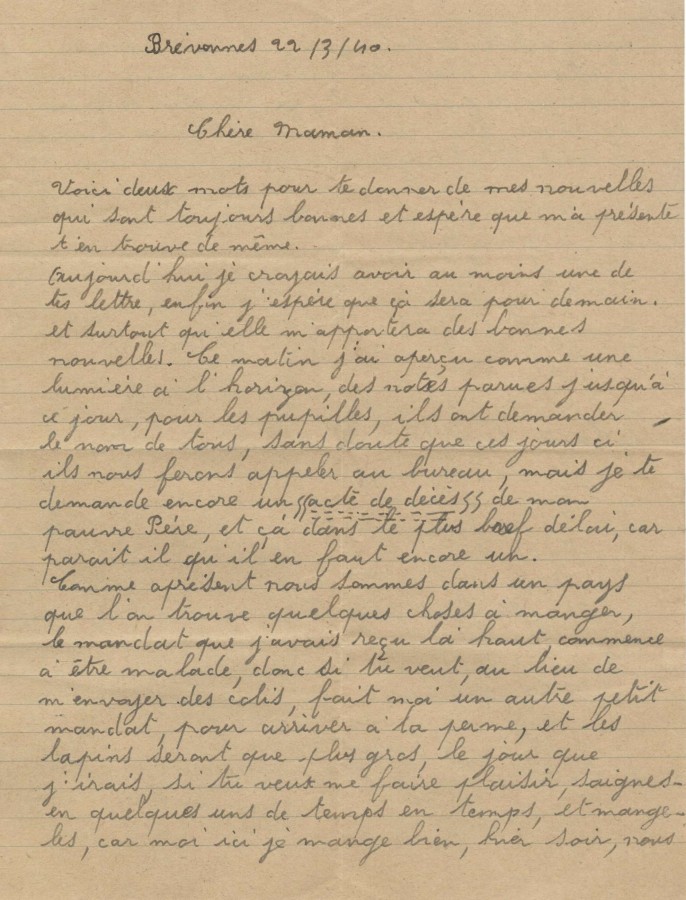 Brévonnes 22/3/40.
Chère Maman.
Voici deux mots pour te donner de mes nouvelles
qui sont toujours bonnes et espère que ma présente
t'en trouve de même.
Aujourd'hui je croyais avoir au moins une de
tes lettre, enfin j'espère que çà sera pour demain.
et surtout qu'elle m'apportera des bonnes
nouvelles. Ce matin j'ai aperçu comme une
lumière à l'horizon, des notes parues jusqu'à
ce jour, pour les pupilles, ils ont demander
le nom de tous, sans doute que ces jours ci
ils nous ferons appeler au bureau, mais je te
demande encore un acte de décès de mon
pauvre Père, et çà dans le plus bref délai, car
parait il qu'il en faut encore un.
Comme aprésent nous sommes dans un pays
que l'on trouve quelques choses à manger,
le mandat que j'avais reçu là haut, commence
à être malade, donc si tu veut, au lieu de
m'envoyer des colis, fait moi un autre petit
mandat, pour arriver à la perme, et les
lapins seront que plus gros, le jour que
j'irais, si tu veux me faire plaisir, saignes-
en quelques uns de temps en temps, et mange-
les, car moi ici je mange bien, hier soir, nous